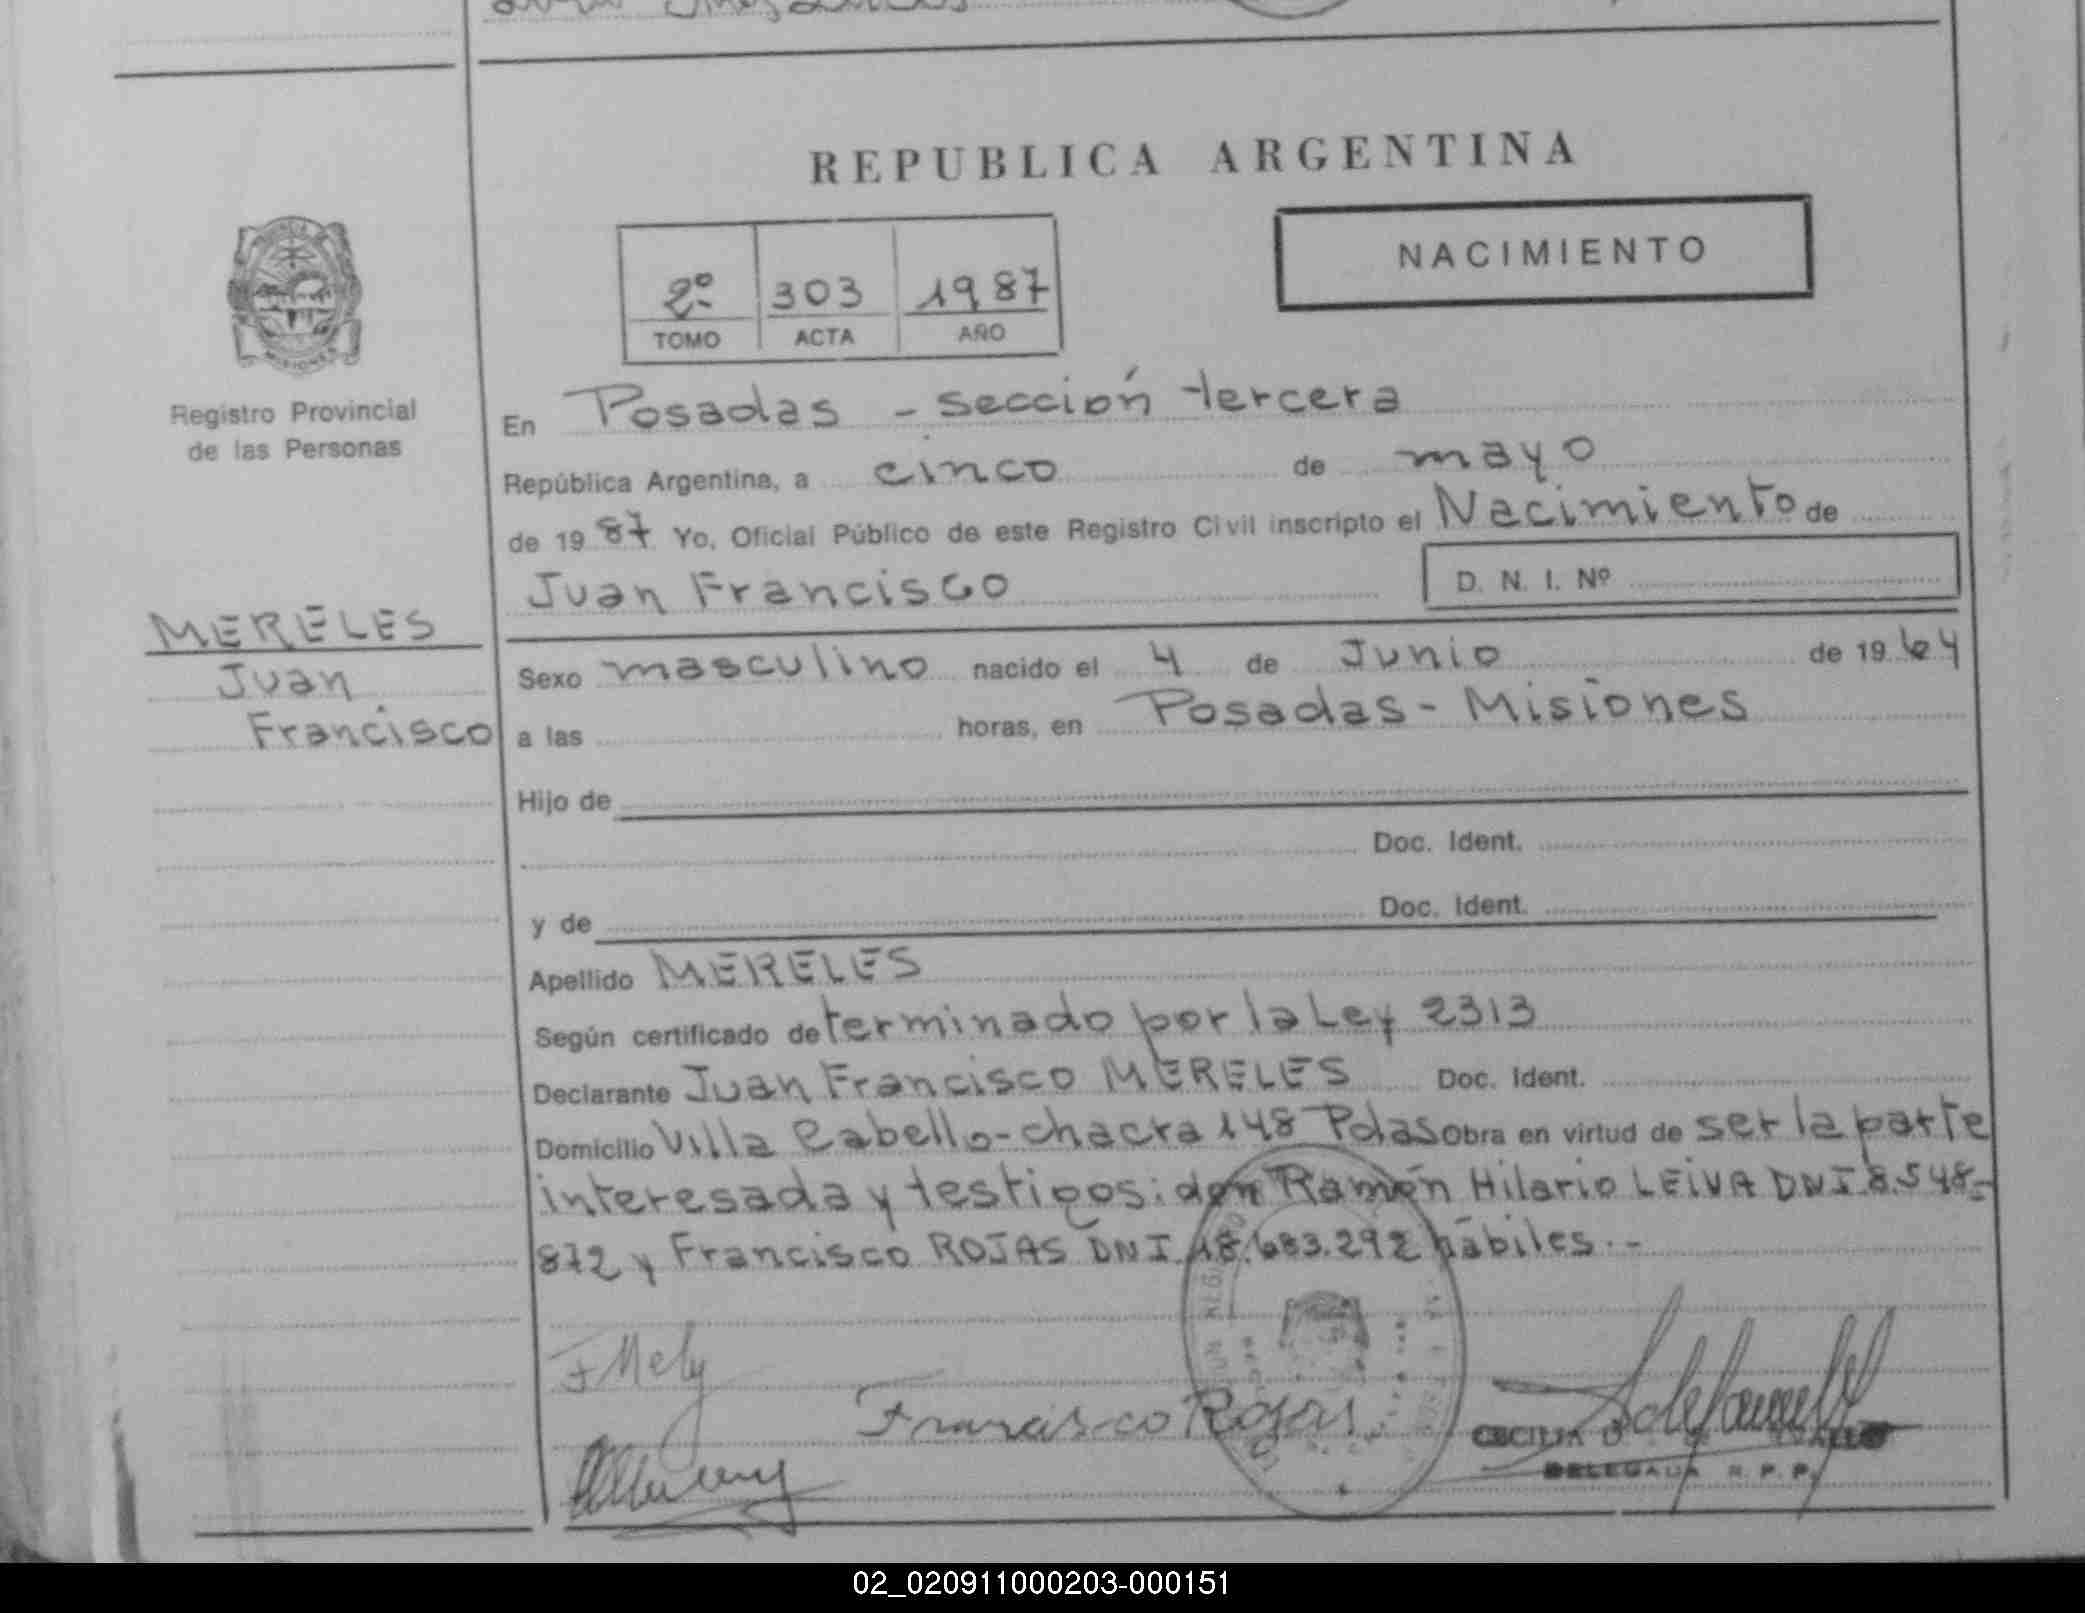 REPUBLICA ARGENTINA
NACIMIENTO
2º 303 1987
TOMO ACTA AÑO
MISIONES
Registro Provincial
de las Personas
MERELES
Juan
Francisco
En Posadas - sección tercera
República Argentina, a cinco de mayo
de 1987 Yo, Oficial Público de este Registro Civil inscripto el Nacimiento de
Juan Francisco D. N. I. Nº
Sexo masculino nacido el 4 de Junio de 1964
a las horas, en Posadas - Misiones
Hijo de
Doc. Ident.
y de Doc. Ident.
Apellido MERELES
Según certificado determinado por la Ley 2313
Declarante Juan Francisco MERELES Doc. Ident.
Domicilio Villa Cabello - chacra 148 Pdas Obra en virtud de ser la parte
interesada y testigos: don Ramón Hilario LEIVA DNI 8.548-
872 y Francisco ROJAS DNI 18.683.292 hábiles.-
Francisco Rojas
CECILIA
DELEGADA R. P. P.
02_020911000203-000151